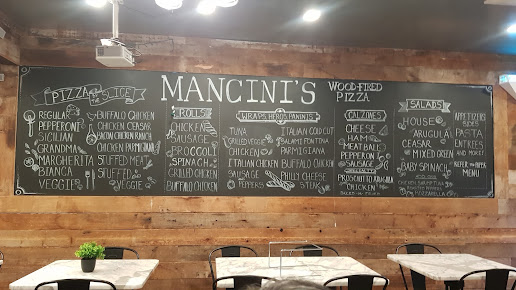 MANCINI'S
WOOD-FIRED
PIZZA
PIZZA BY THE SLICE
REGULAR
PEPPERONI
SICILIAN
GRANDMA
MARGHERITA
BIANCA
VEGGIE
BUFFALO CHICKEN
CHICKEN CEASAR
BACON CHICKEN RANCH
CHICKEN PARMIGIANA
STUFFED MEAT
STUFFED
VEGGIE
ROLLS
CHICKEN
SAUSAGE
BROCCOLI
SPINACH
GRILLED CHICKEN
BUFFALO CHICKEN
WRAPS, HEROS, PANINIS
TUNA
GRILLED VEGGIE
CHICKEN
EGGPLANT
SAUSAGE
PEPPERS
ITALIAN COLD CUT
SALAMI FONTINA
PARMIGIANA
ITALIAN CHICKEN
BUFFALO CHICKEN
PHILLY CHEESE
STEAK
CALZONES
CHEESE
HAM
MEATBALL
PEPPERONI
SAUSAGE
CHICKEN
SALADS
HOUSE
ARUGULA
CEASAR
MIXED GREEN
BABY SPINACH
MOZZARELLA
APPETIZERS
SIDES
PASTA
ENTREES
AND MORE!
REFER TO OUR
MENU